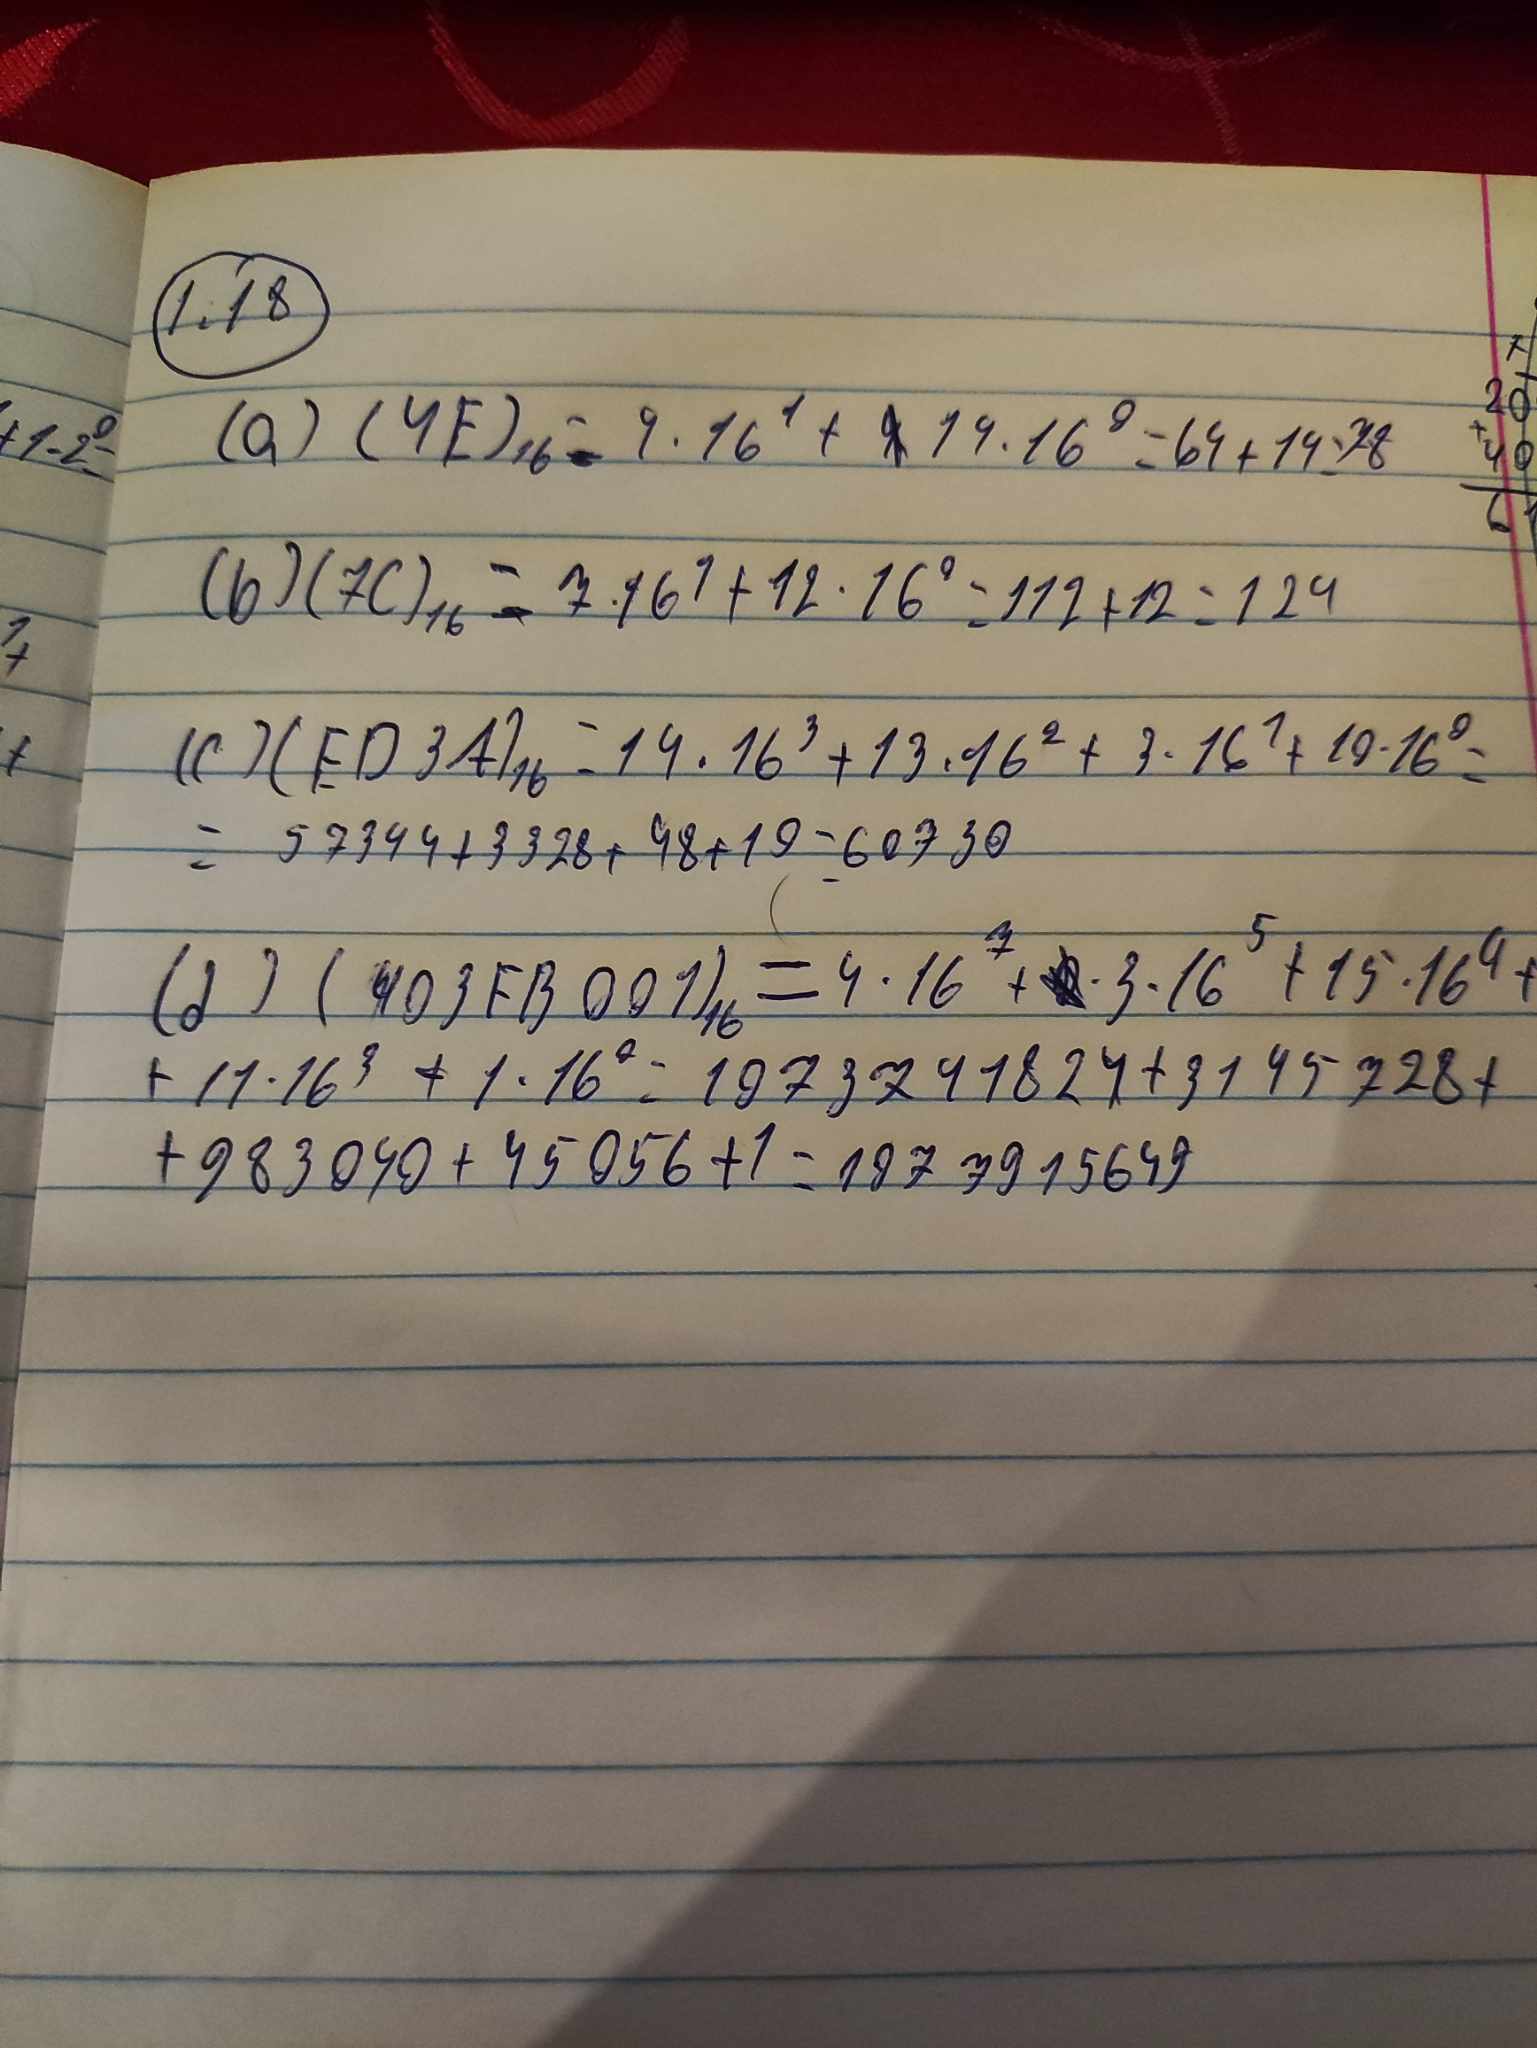 1.18
(a) (4E)₁₆ = 4·16¹ + 14·16⁰ = 64 + 14 = 78
(b) (7C)₁₆ = 7·16¹ + 12·16⁰ = 112 + 12 = 124
(c) (ED3A)₁₆ = 14·16³ + 13·16² + 3·16¹ + 10·16⁰ =
= 57344 + 3328 + 48 + 10 = 60730
(d) (403FB001)₁₆ = 4·16⁷ + ·3·16⁵ + 15·16⁴ +
+ 11·16³ + 1·16⁰ = 1073741824 + 3145728 +
+ 983040 + 45056 + 1 = 1077915649
+1·2⁰=
20
+
40